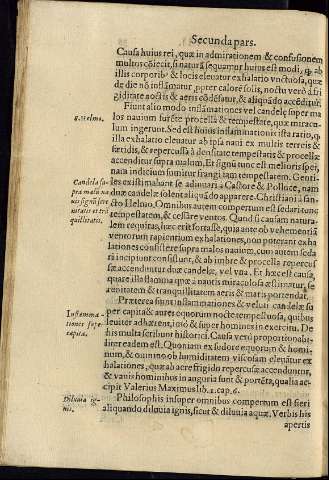 Secunda pars.
Causa huius rei, quæ in admirationem & confusionem
multos cõiecit, si naturã sequamur huius est modi, q̃ ab
illis corporib⁹ & locis eleuatur exhalatio vnctuosa, quæ
de die nõ inflãmatur, ppter calorẽ solis, noctu verò à fri
giditate aocis & aeris cõdẽsatur, & aliquãdo accẽditur.
Fiunt alio modo inflammationes vel candelę super ma
los nauium surẽte procella & tempestate, quæ miracu-
lum ingerunt. Sed est huius inflammationis ista ratio, q̃
illa exhalatio eleuatur ab ipsa naui ex multis terreis &
fœtidis, & repercussa à densitate tempestatis & procellæ
accenditur supra malum. Et signũ tunc est melioris spei,
nam indicium sumitur frangi iam tempestatem. Gentiles
existimabant se adiuuari à Castore & Polluce, nam
duæ candelæ solent aliquãdo apparere. Christiani à San
cto Helmo. Omnibus autem compertum est sedari tunc
tempestatem, & cessãre ventos. Quod si causam natura-
lem requiras, hæc erit fortasse, quia ante ob vehementiã
ventorum rapientium exhalationes, non poterant exha
lationes consistere supra malos nauium, cum autem seda
ri incipiunt consistunt, & ab imbre & procella repercus
sæ accenduntur duæ candelæ, vel vna. Et hæc est causa,
quare illa flamma quæ à nautis miraculosa æstimatur, se
renitatem & tranquillitatem aeris & maris portendat.
Præterea sunt inflammationes & veluti candelæ su
per capita & aures equorum nocte tempestuosa, quibus
leuiter adhærent, imò & super homines in exercitu. De
his multa scribunt historici. Causa verò proportionabi-
liter eadem est. Quoniam ex sudore equorum & homi-
num, & omnino ob humiditatem viscosam eleuãtur ex
halationes, quæ ab aere frigido repercussæ accenduntur,
& vanis hominibus in auguria sunt & portẽta, qualia ac-
cipit Valerius Maximus lib. 1. cap. 6.
Philosophis insuper omnibus compertum est fieri
aliquando diluuia ignis, sicut & diluuia aquæ. Verbis his
apertis
S. Telmo.
Candela su-
pra malũ na
uis signũ sere
nitatis et trã
quillitatis.
Inflamma-
tiones supe
capita.
Diluuia ig-
nis.